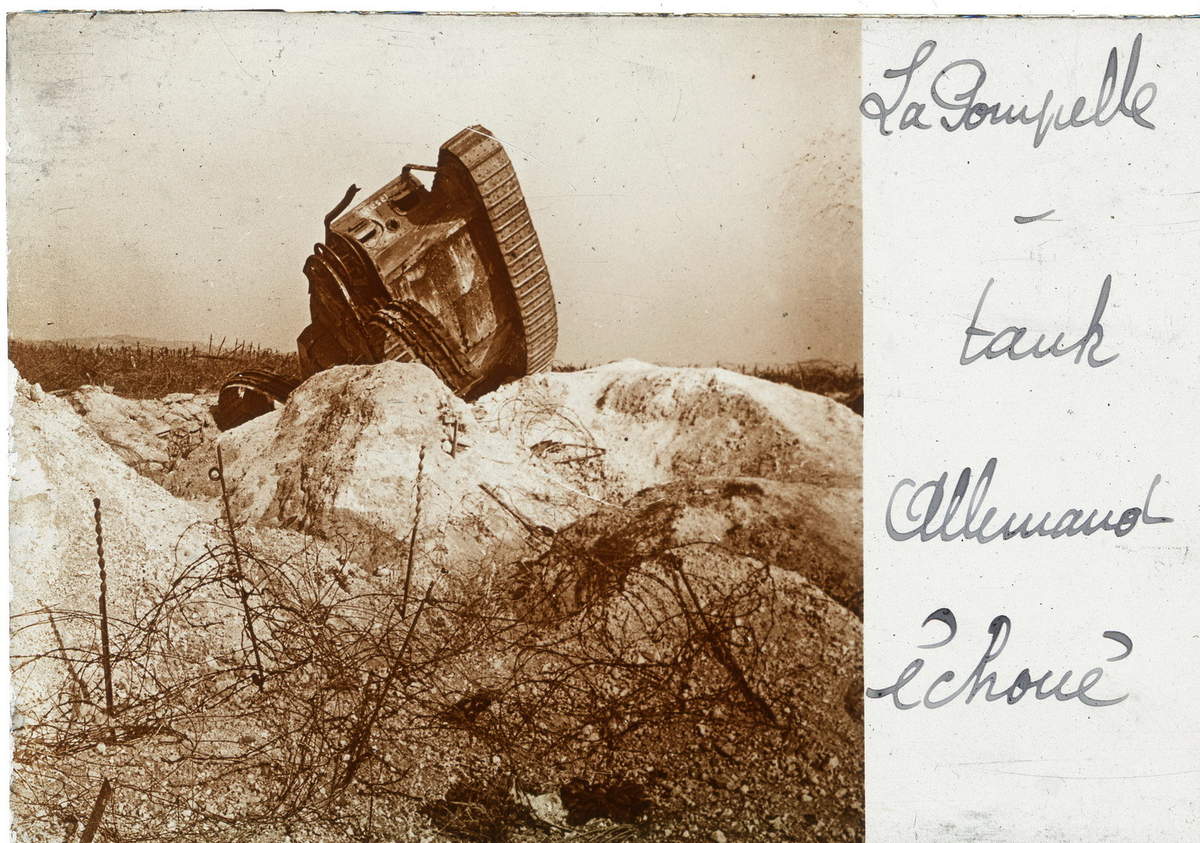 La Pompelle
-
tank
Allemand
échoué